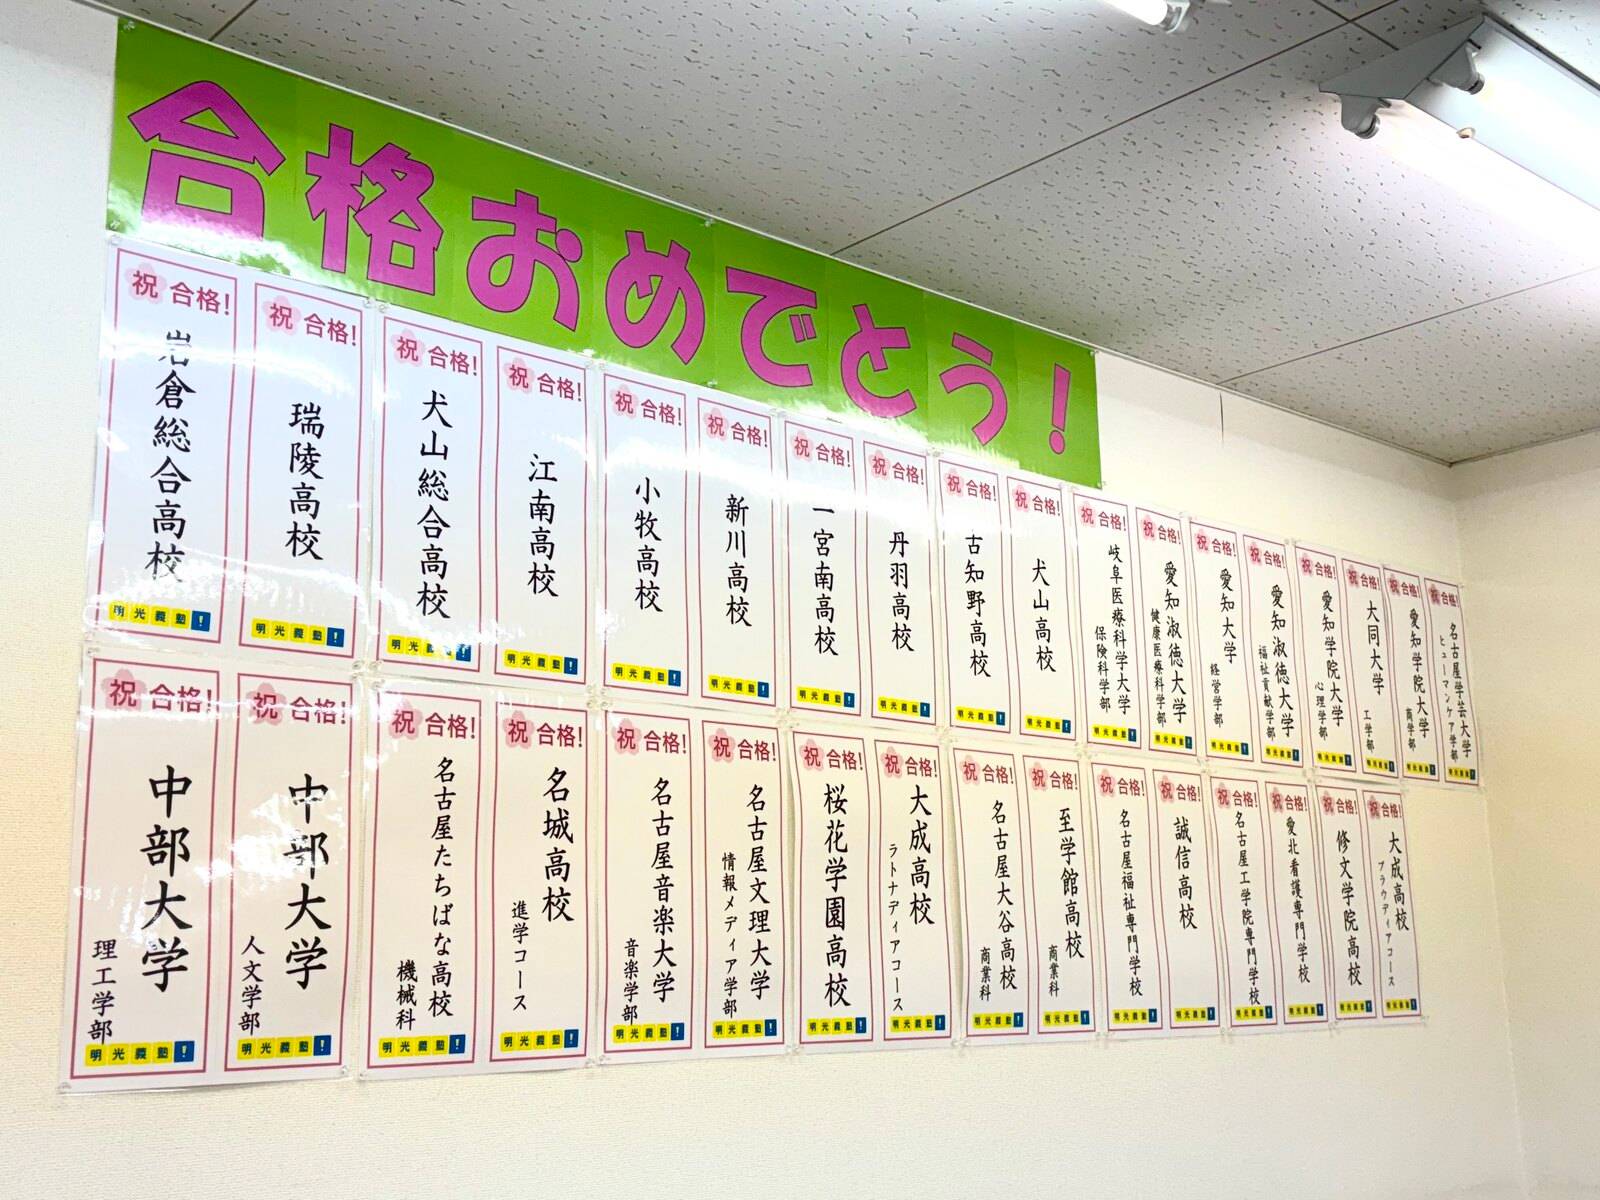 合格おめでとう！
祝 合格!
岩倉総合高校
明光義塾!
祝 合格!
瑞陵高校
明光義塾!
祝 合格!
犬山総合高校
明光義塾!
祝 合格!
江南高校
明光義塾!
祝 合格!
小牧高校
明光義塾!
祝 合格!
新川高校
明光義塾!
祝 合格!
一宮南高校
明光義塾!
祝 合格!
丹羽高校
明光義塾!
祝 合格!
古知野高校
明光義塾!
祝 合格!
犬山高校
明光義塾!
祝 合格!
岐阜医療科学大学
保険科学部
明光義塾!
祝 合格!
愛知淑徳大学
健康医療科学部
明光義塾!
祝 合格!
愛知大学
経営学部
明光義塾!
祝 合格!
愛知淑徳大学
福祉貢献学部
明光義塾!
祝 合格!
愛知学院大学
心理学部
明光義塾!
祝 合格!
大同大学
工学部
明光義塾!
祝 合格!
愛知学院大学
商学部
明光義塾!
祝 合格!
名古屋学芸大学
ヒューマンケア学部
明光義塾!
祝 合格!
中部大学
理工学部
明光義塾!
祝 合格!
中部大学
人文学部
明光義塾!
祝 合格!
名古屋たちばな高校
機械科
明光義塾!
祝 合格!
名城高校
進学コース
明光義塾!
祝 合格!
名古屋音楽大学
音楽学部
明光義塾!
祝 合格!
名古屋文理大学
情報メディア学部
明光義塾!
祝 合格!
桜花学園高校
明光義塾!
祝 合格!
大成高校
ラトナディアコース
明光義塾!
祝 合格!
名古屋大谷高校
商業科
明光義塾!
祝 合格!
至学館高校
商業科
明光義塾!
祝 合格!
名古屋福祉専門学校
明光義塾!
祝 合格!
誠信高校
明光義塾!
祝 合格!
名古屋工学院専門学校
明光義塾!
祝 合格!
愛北看護専門学校
明光義塾!
祝 合格!
修文学院高校
明光義塾!
祝 合格!
大成高校
プラウディアコース
明光義塾!